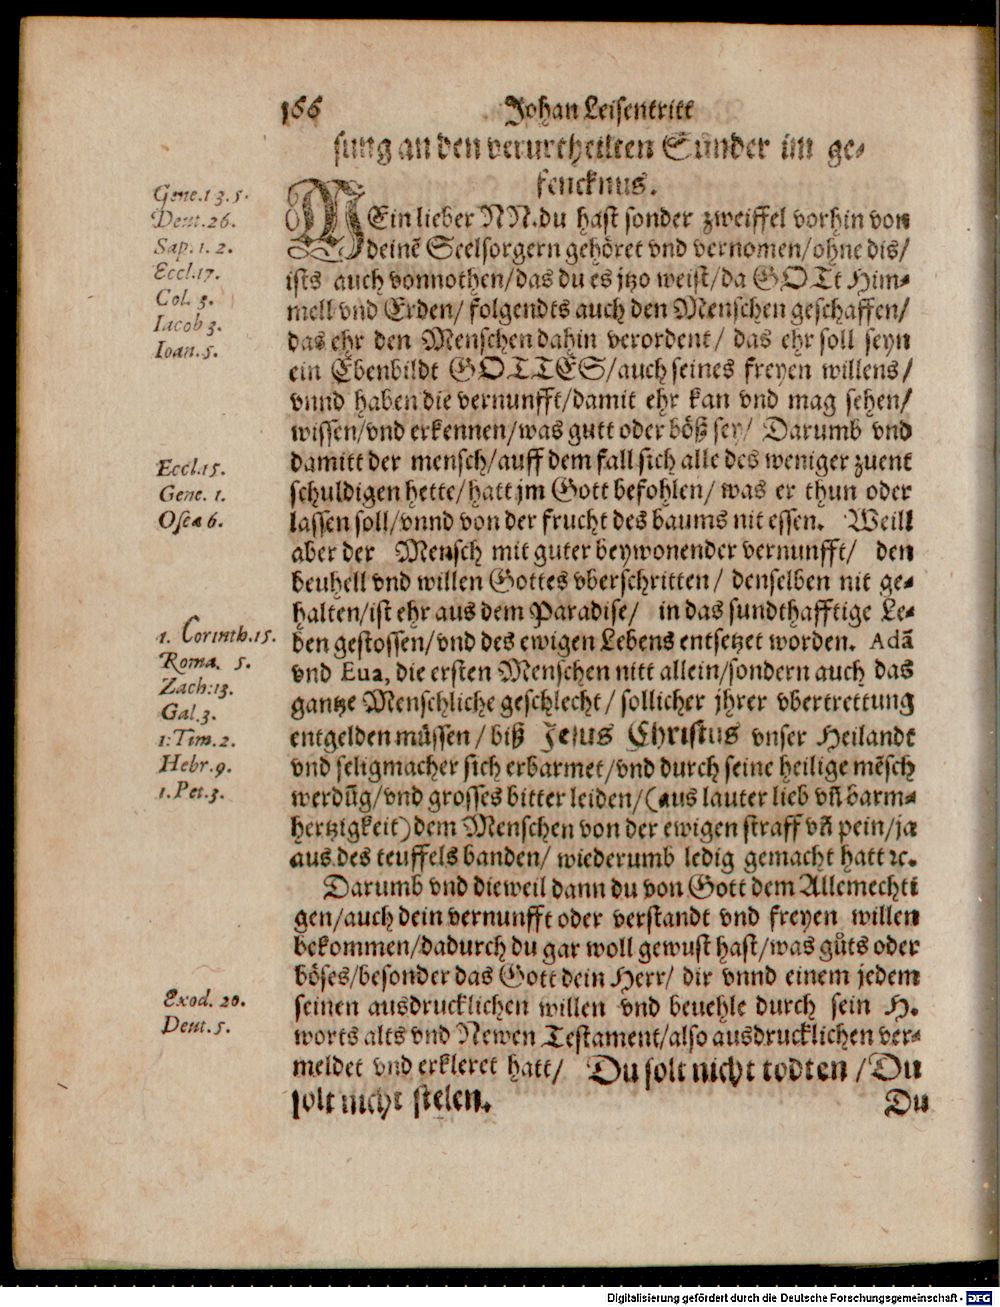 166 Johan Leisentritt
sung an den verurtheilten Sünder im ge-
fencknus.
Gene. 1 3. 5.
Deut. 26.
Sap. 1. 2.
Eccl. 17.
Col. 3.
Iacob 3.
Ioan. 5.
MEin lieber NN. du hast sonder zweiffel vorhin von
deinē Seelsorgern gehöret vnd vernomen/ohne dis/
ists auch vonnothen/das du es jtzo weist/da GOTt Him-
mell vnd Erden/ folgendts auch den Menschen geschaffen/
das ehr den Menschen dahin verordent/ das ehr soll seyn
ein Ebenbildt GOTTES/auch seines freyen willens/
vnnd haben die vernunfft/damit ehr kan vnd mag sehen/
wissen/vnd erkennen/was gutt oder böß sey/ Darumb vnd
Eccl. 15.
Gene. 1.
Osea 6.
damitt der mensch/auff dem fall sich alle des weniger zuent
schuldigen hette/hatt jm Gott befohlen/ was er thun oder
lassen soll/vnnd von der frucht des baums nit essen. Weill
aber der Mensch mit guter beywonender vernunfft/ den
beuhell vnd willen Gottes vberschritten/ denselben nit ge-
halten/ist ehr aus dem Paradise/ in das sundthafftige Le-
1. Corinth. 15.
Roma. 5.
Zach: 13.
Gal. 3.
1: Tim. 2.
Hebr. 9.
1. Pet. 3.
ben gestossen/vnd des ewigen Lebens entsetzet worden. Adā
vnd Eua, die ersten Menschen nitt allein/sondern auch das
gantze Menschliche geschlecht/ sollicher jhrer vbertrettung
entgelden müssen/ biß Jesus Christus vnser Heilandt
vnd seligmacher sich erbarmet/vnd durch seine heilige mēsch
werdūg/vnd grosses bitter leiden/(aus lauter lieb vñ barm-
hertzigkeit) dem Menschen von der ewigen straff vñ pein/ja
aus des teuffels banden/ wiederumb ledig gemacht hatt ꝛc.
Darumb vnd dieweil dann du von Gott dem Allemechti
gen/auch dein vernunfft oder verstandt vnd freyen willen
bekommen/dadurch du gar woll gewust hast/was gůts oder
böses/besonder das Gott dein Herr/ dir vnnd einem jedem
Exod. 20.
Deut. 5.
seinen ausdrucklichen willen vnd beuehle durch sein H.
worts alts vnd Newen Testament/also ausdrucklichen ver-
meldet vnd erkleret hatt/ Du solt nicht todten/Du
solt nicht stelen.
Du
Digitalisierung gefördert durch die Deutsche Forschungsgemeinschaft - DFG